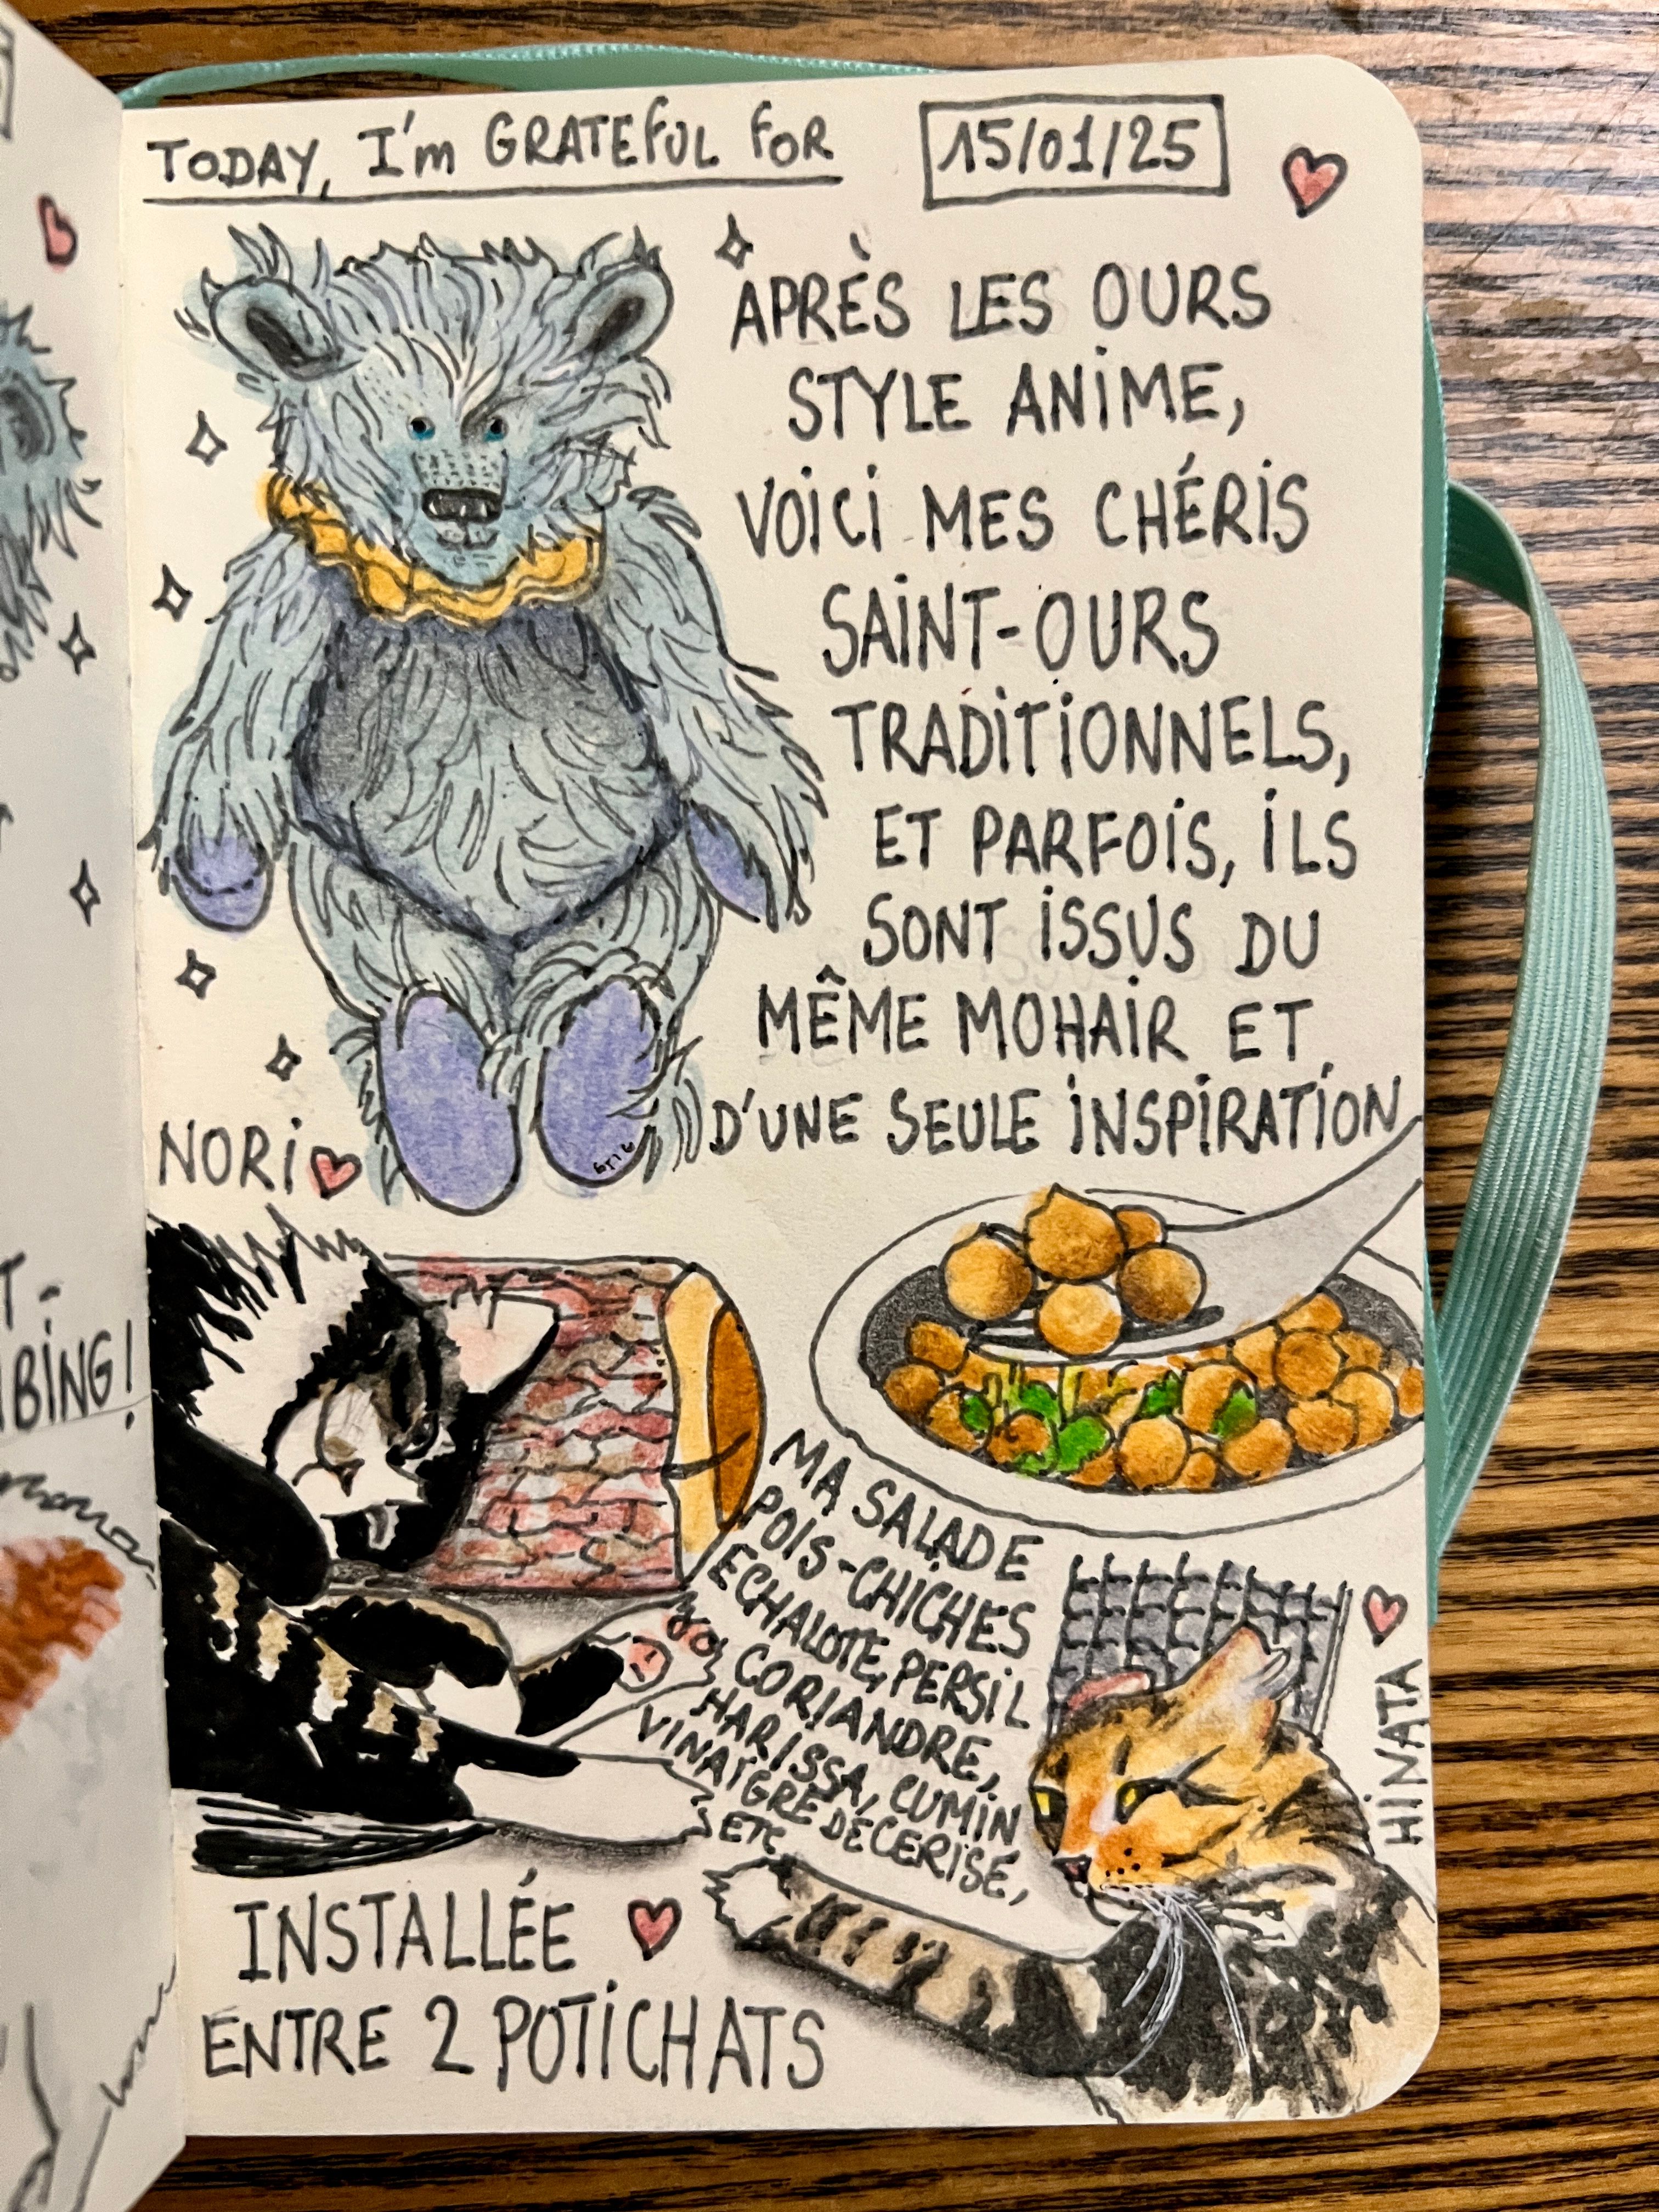 TODAY, I'm GRATEFUL FOR
15/01/25
APRÈS LES OURS
STYLE ANIME,
VOICI MES CHÉRIS
SAINT-OURS
TRADITIONNELS,
ET PARFOIS, ILS
SONT ISSUS DU
MÊME MOHAIR ET
D'UNE SEULE INSPIRATION
NORI
BING!
MA SALADE
POIS-CHICHES
ECHALOTE, PERSIL
CORIANDRE,
HARISSA, CUMIN
VINAIGRE DE CERISE,
ETC
HINATA
INSTALLÉE
ENTRE 2 POTICHATS